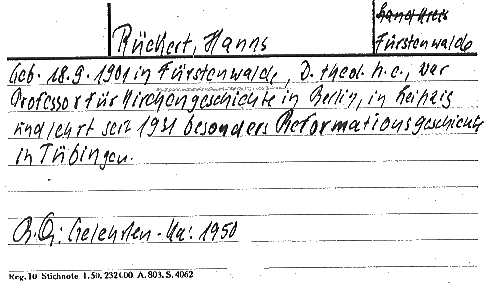 Landkreis
Rückert, Hanns Fürstenwalde
Geb. 18.9.1901 in Fürstenwalde, D. theol. h.c., war
Professor für Kirchengeschichte in Berlin, in Leipzig
und lehrt seit 1931 besonders Reformationsgeschichte
in Tübingen.
Gelehrten-Ka: 1950
Reg. 10 Stichnote 1.50. 232600. A. 803. S. 4062